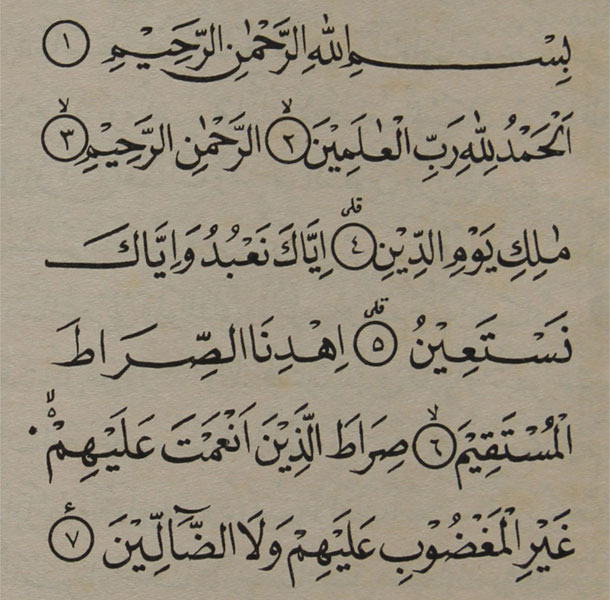 بِسْــــمِ اللهِ الرَّحْمٰنِ الرَّحِيْمِ ١
اَلْحَمْدُ لِلّٰهِ رَبِّ الْعٰلَمِيْنَ ۙ٢ الرَّحْمٰنِ الرَّحِيْمِ ۙ٣
مٰلِكِ يَوْمِ الدِّيْنِ ۗ٤ اِيَّاكَ نَعْبُدُ وَاِيَّاكَ
نَسْتَعِيْنُ ۗ٥ اِهْدِنَا الصِّرَاطَ
الْمُسْتَقِيْمَ ۙ٦ صِرَاطَ الَّذِيْنَ اَنْعَمْتَ عَلَيْهِمْ ۙ۬
غَيْرِ الْمَغْضُوْبِ عَلَيْهِمْ وَلَا الضَّاۤلِّيْنَ ࣖ٧